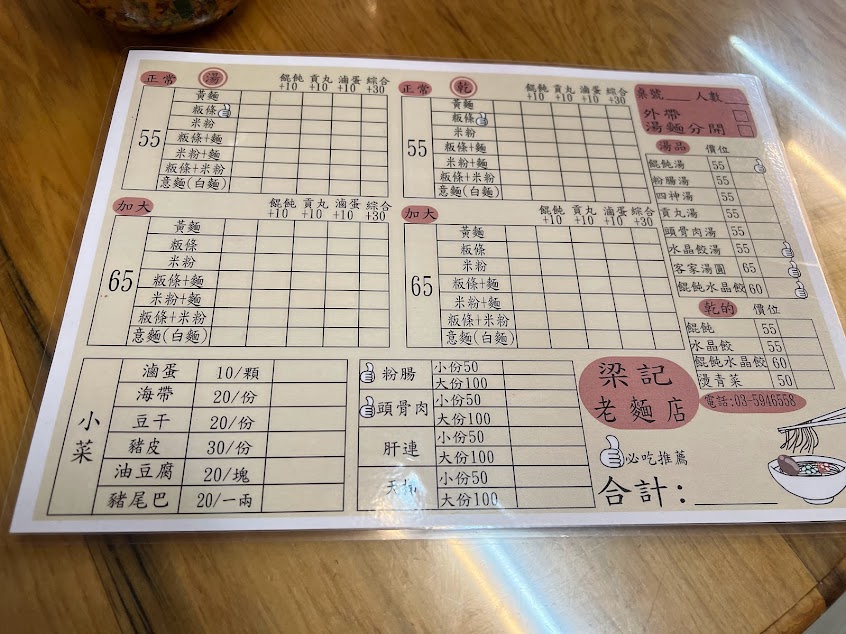 正常 湯 餛飩 貢丸 滷蛋 綜合
+10 +10 +10 +30
55
黃麵
粄條
米粉
粄條+麵
米粉+麵
粄條+米粉
意麵(白麵)
加大 餛飩 貢丸 滷蛋 綜合
+10 +10 +10 +30
65
黃麵
粄條
米粉
粄條+麵
米粉+麵
粄條+米粉
意麵(白麵)
正常 乾 餛飩 貢丸 滷蛋 綜合
+10 +10 +10 +30
55
黃麵
粄條
米粉
粄條+麵
米粉+麵
粄條+米粉
意麵(白麵)
加大 餛飩 貢丸 滷蛋 綜合
+10 +10 +10 +30
65
黃麵
粄條
米粉
粄條+麵
米粉+麵
粄條+米粉
意麵(白麵)
桌號___ 人數___
外帶
湯麵分開
湯品 價位
餛飩湯 55
粉腸湯 55
四神湯 55
貢丸湯 55
頭骨肉湯 55
水晶餃湯 55
客家湯圓 65
餛飩水晶餃 60
乾的 價位
餛飩 55
水晶餃 55
餛飩水晶餃 60
燙青菜 50
小菜
滷蛋 10/顆
海帶 20/份
豆干 20/份
豬皮 30/份
油豆腐 20/塊
豬尾巴 20/一兩
粉腸 小份50
大份100
頭骨肉 小份50
大份100
肝連 小份50
大份100
天 小份50
大份100
梁記
老麵店
電話:03-5946558
必吃推薦
合計:______